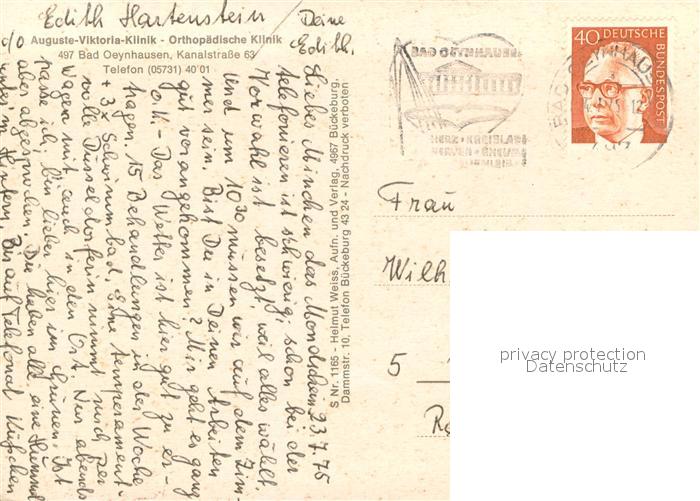 Edith Hartenstein
c/o Auguste-Viktoria-Klinik - Orthopädische Klinik
497 Bad Oeynhausen, Kanalstraße 63
Telefon (05731) 40 01
23.7.75
Liebes Minchen das Mondschein
telefonieren ist schwierig, schon bei der
Vorwahl ist besetzt, weil alles wählt.
Und um 10³⁰ müssen wir auf dem Zim-
mer sein. Bist Du in Deinen Arbeiten
gut vorangekommen? Mir geht es ganz
o.k. - Das Wetter ist hier gut zu er-
tragen. 15 Behandlungen in der Woche
+ 3x Schwimmbad. Eine temperament-
volle Düsseldorferin nimmt mich per
Wagen mit, auch in den Ort. Nur abends
passe ich, bin lieber hier im Grünen. Ist
aber abgesprochen. Die haben alle eine Hummel
unterm Hintern. Bis auf Telefonat Küßchen
Deine
Edith.
S Nr. 1165 - Helmut Weiss, Aufn. und Verlag, 4967 Bückeburg,
Dammstr. 10, Telefon Bückeburg 43 24 - Nachdruck verboten
BAD OEYNHAUSEN
HERZ • KREISLAUF
NERVEN • RHEUMA
40 DEUTSCHE
BUNDESPOST
Frau
Wilh
5
privacy protection
Datenschutz